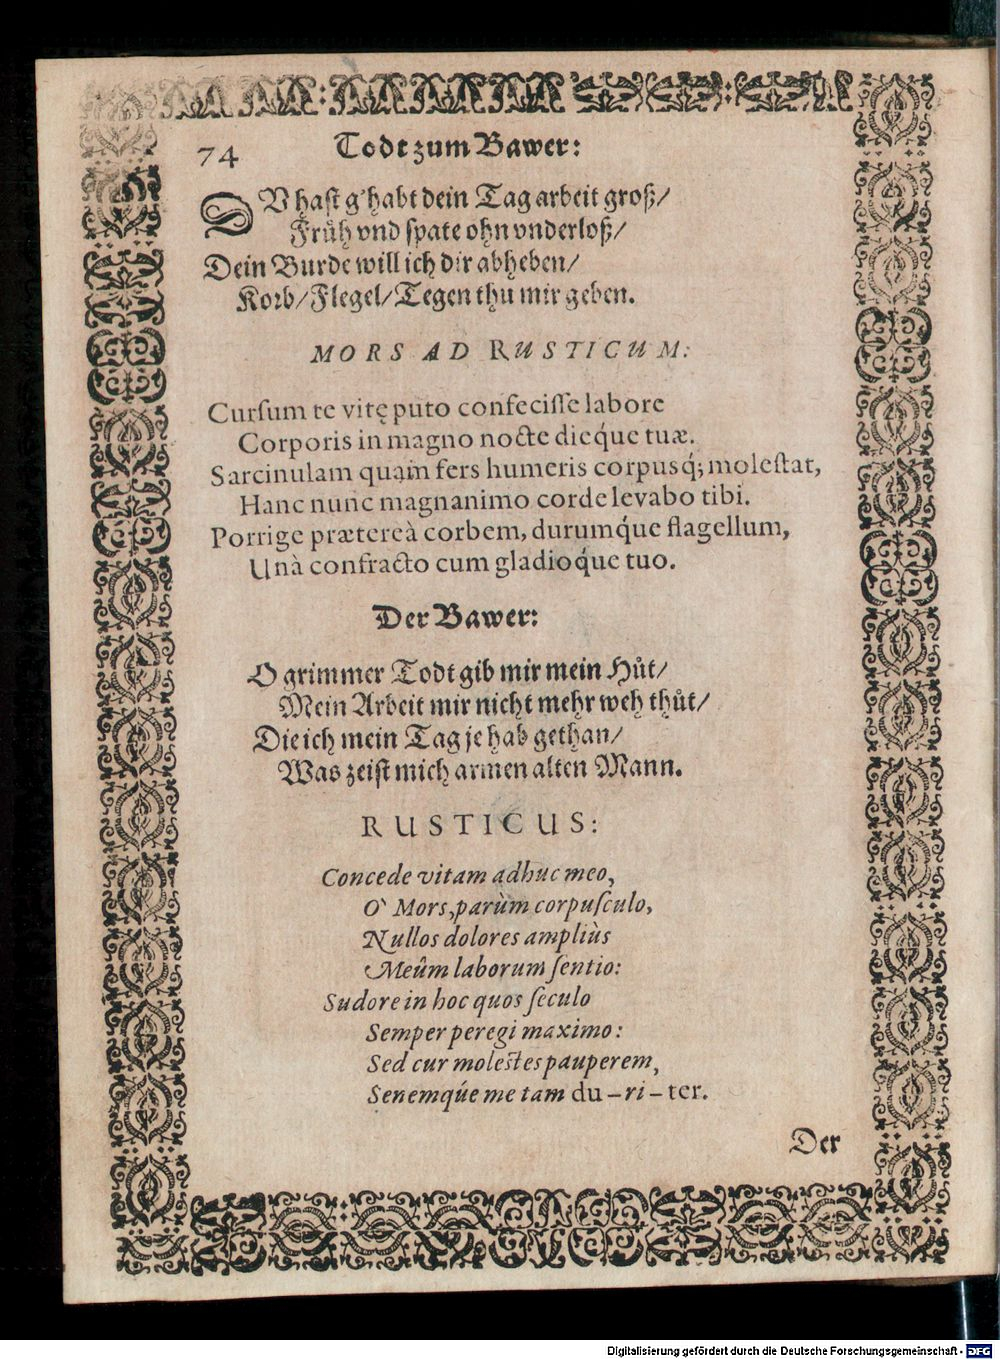 74
Todt zum Bawer:
DV hast g'habt dein Tag arbeit groß/
Früh vnd spate ohn vnderloß/
Dein Burde will ich dir abheben/
Korb/Flegel/Tegen thu mir geben.
MORS AD RUSTICUM:
Cursum te vitę puto confecisse labore
Corporis in magno nocte dieq́ue tuæ.
Sarcinulam quam fers humeris corpusq́; molestat,
Hanc nunc magnanimo corde levabo tibi.
Porrige prætereà corbem, durumq́ue flagellum,
Unà confracto cum gladioq́ue tuo.
Der Bawer:
O grimmer Todt gib mir mein Hůt/
Mein Arbeit mir nicht mehr weh thůt/
Die ich mein Tag je hab gethan/
Was zeist mich armen alten Mann.
RUSTICUS:
Concede vitam adhuc meo,
O` Mors, parùm corpusculo,
Nullos dolores ampliùs
Meûm laborum sentio:
Sudore in hoc quos seculo
Semper peregi maximo:
Sed cur molestes pauperem,
Senemq́ue me tam du-ri-ter.
Der
Digitalisierung gefördert durch die Deutsche Forschungsgemeinschaft - DFG